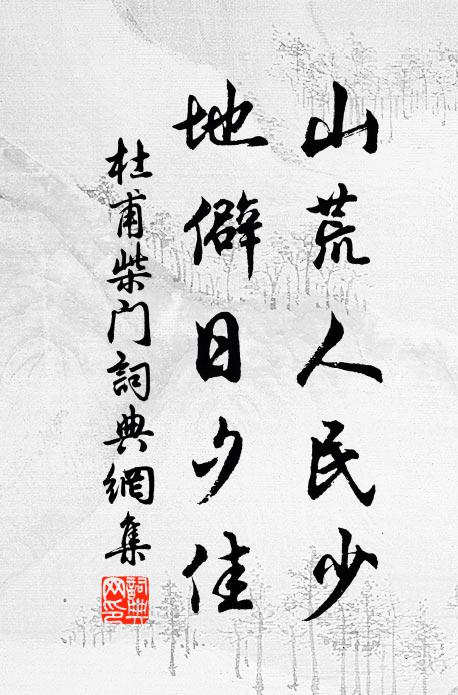 山荒人民少
地僻日夕佳
杜甫柴门詞典網集
詞典